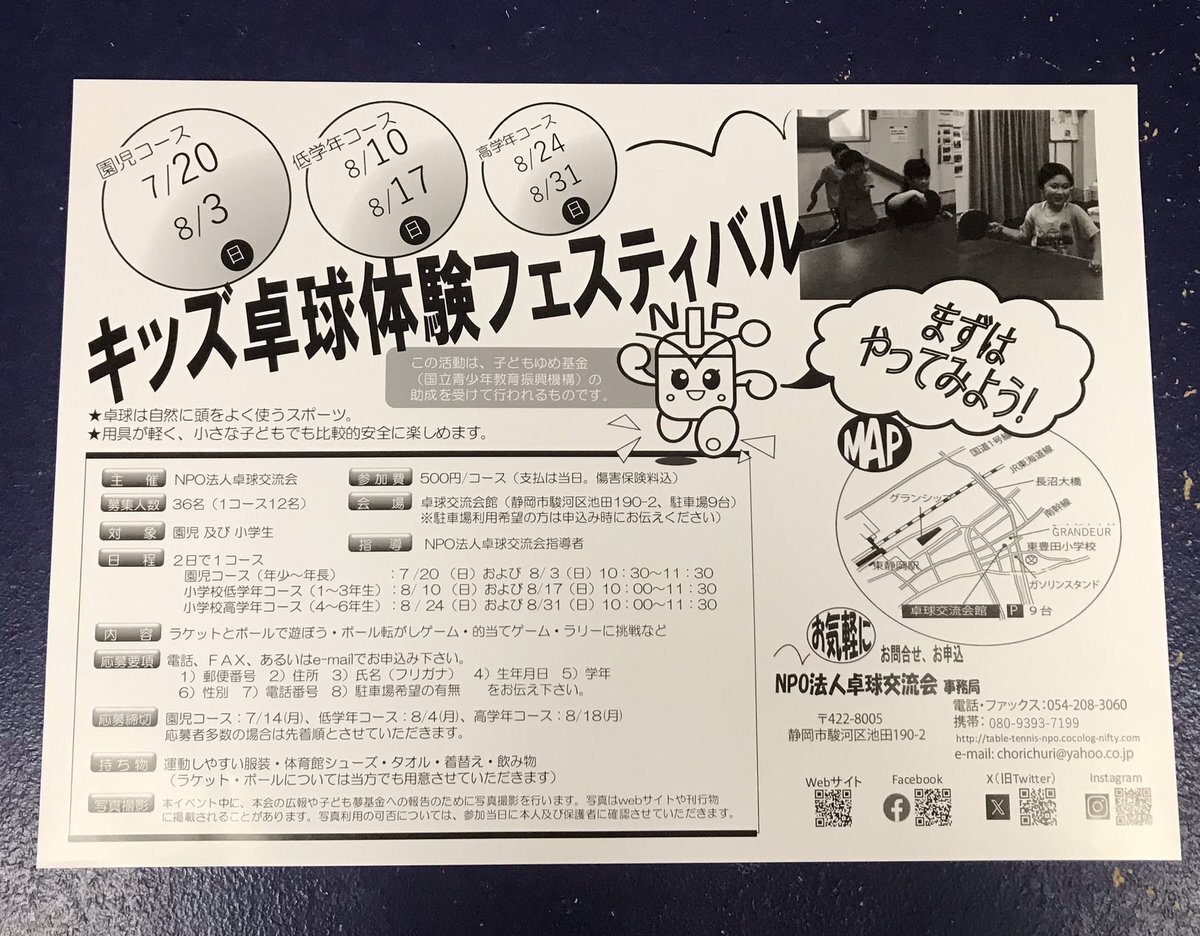 園児コース
7/20
8/3
日
低学年コース
8/10
8/17
日
高学年コース
8/24
8/31
日
キッズ卓球体験フェスティバル
この活動は、子どもゆめ基金
（国立青少年教育振興機構）の
助成を受けて行われるものです。
NPO
まずは
やってみよう!
★卓球は自然に頭をよく使うスポーツ。
★用具が軽く、小さな子どもでも比較的安全に楽しめます。
主　催　NPO法人卓球交流会
募集人数　36名（1コース12名）
対　象　園児 及び 小学生
参加費　500円/コース（支払は当日。傷害保険料込）
会　場　卓球交流会館（静岡市駿河区池田190-2、駐車場9台）
※駐車場利用希望の方は申込み時にお伝えください）
指　導　NPO法人卓球交流会指導者
日　程　2日で1コース
園児コース（年少～年長）　：7/20（日）および 8/3（日）10：30～11：30
小学校低学年コース（1～3年生）：8/10（日）および8/17（日）10：00～11：30
小学校高学年コース（4～6年生）：8/24（日）および8/31（日）10：00～11：30
内　容　ラケットとボールで遊ぼう・ボール転がしゲーム・的当てゲーム・ラリーに挑戦など
応募要項　電話、ＦＡＸ、あるいはe-mailでお申込み下さい。
1）郵便番号　2）住所　3）氏名（フリガナ）　4）生年月日　5）学年
6）性別　7）電話番号　8）駐車場希望の有無　をお伝え下さい。
応募締切　園児コース：7/14(月)、低学年コース：8/4(月)、高学年コース：8/18(月)
応募者多数の場合は先着順とさせていただきます。
持ち物　運動しやすい服装・体育館シューズ・タオル・着替え・飲み物
（ラケット・ボールについては当方でも用意させていただきます）
写真撮影　本イベント中に、本会の広報や子ども夢基金への報告のために写真撮影を行います。写真はwebサイトや刊行物
に掲載されることがあります。写真利用の可否については、参加当日に本人及び保護者に確認させていただきます。
MAP
国道1号線
JR東海道線
長沼大橋
グランシップ
南幹線
GRANDEUR
東豊田小学校
東静岡駅
ガソリンスタンド
卓球交流会館　P　9台
お気軽に　お問合せ、お申込
NPO法人卓球交流会 事務局
〒422-8005
静岡市駿河区池田190-2
電話・ファックス：054-208-3060
携帯：080-9393-7199
http://table-tennis-npo.cocolog-nifty.com
e-mail: chorichuri@yahoo.co.jp
Webサイト
Facebook
X（旧Twitter）
Instagram